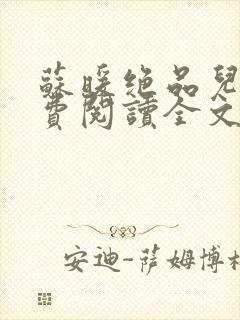 蘇暖絶品兒
費閱讀全文
安迪-薩姆博